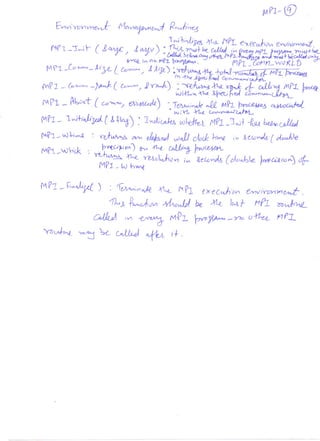 MPI-(9)
Environment Management Routines
MPI_Init (&argc, &argv) : Initializes the MPI execution environment.
This must be called in every MPI program, must be
called before any other MPI functions and must be called only
once in an MPI program.
MPI_COMM_WORLD
MPI_Comm_size (comm, &size) : returns the total number of MPI processes
in the specified communicator
MPI_Comm_rank (comm, &rank) : returns the rank of calling MPI process
within the specified communicator
MPI_Abort (comm, errorcode) : Terminate all MPI processes associated
with the communicator
MPI_Initialized (&flag) : Indicates whether MPI_Init has been called
MPI_Wtime : returns an elapsed wall clock time in seconds (double
precision) on the calling processor
MPI_Wtick : returns the resolution in seconds (double precision) of
MPI_Wtime
MPI_Finalize( ) : Terminate the MPI execution environment.
This function should be the last MPI routine
called in every MPI program - no other MPI
routine may be called after it.